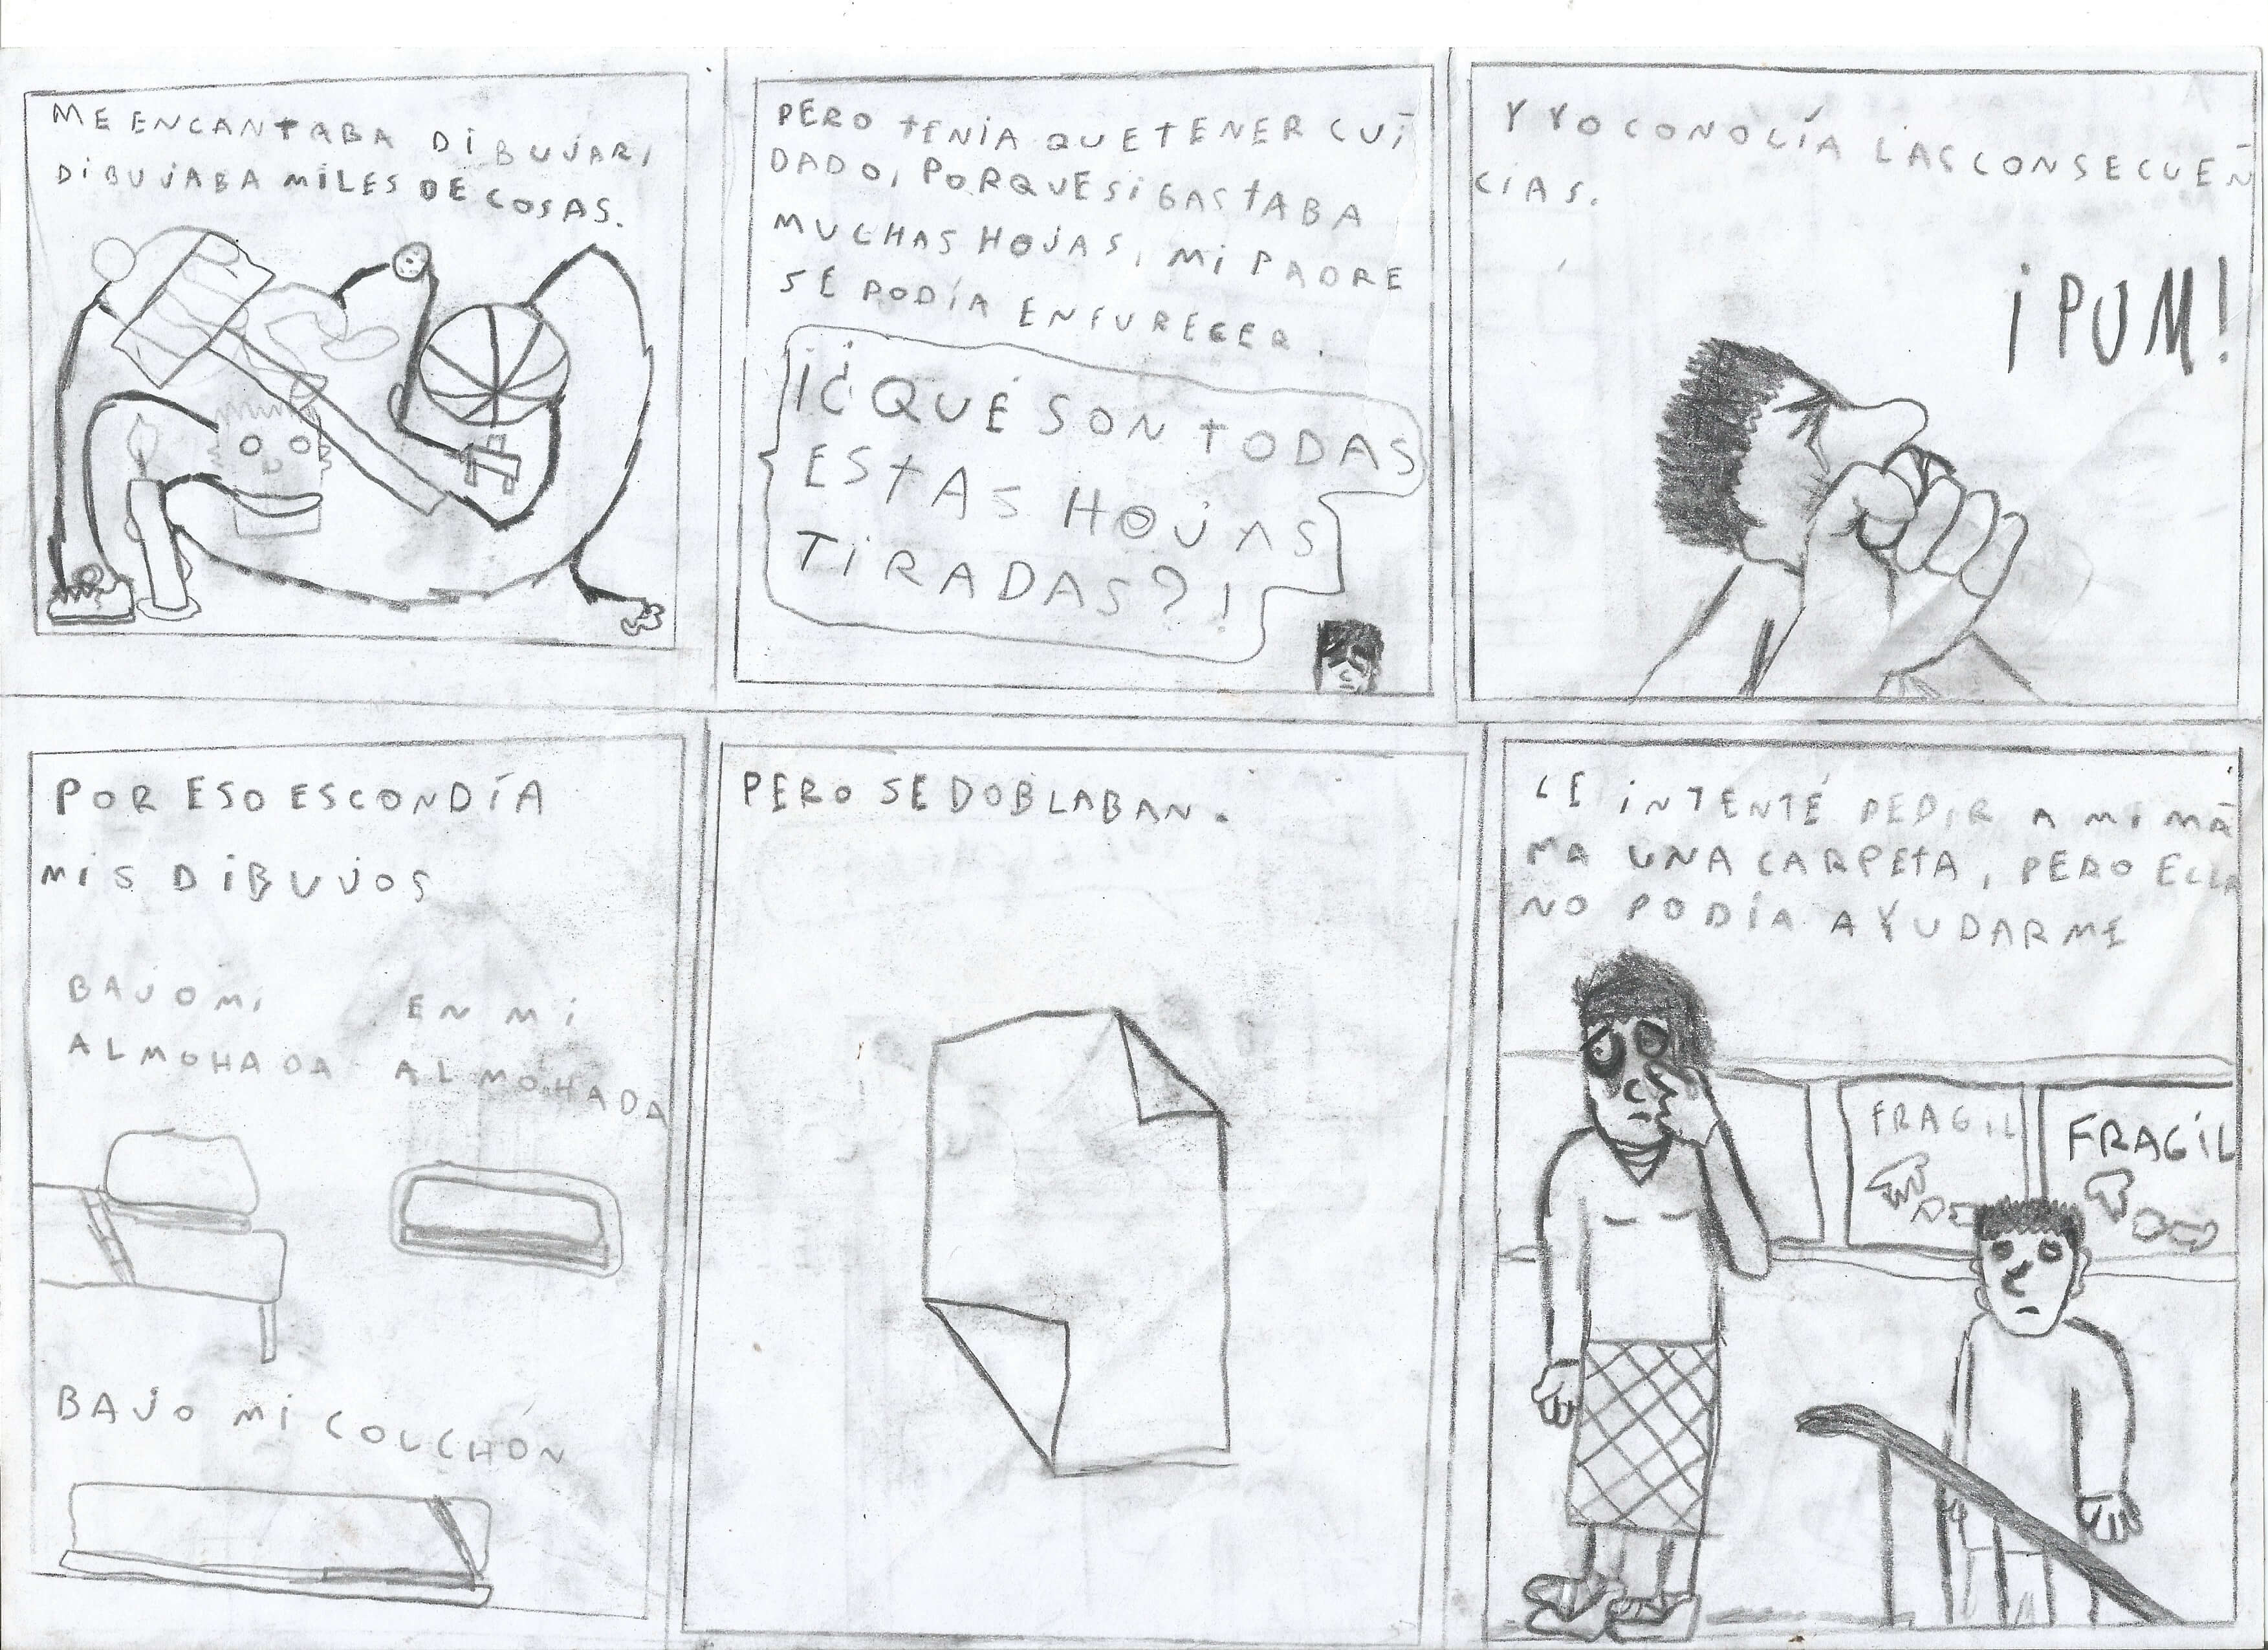 ME ENCANTABA DIBUJAR,
DIBUJABA MILES DE COSAS.
PERO TENIA QUE TENER CUI
DADO, PORQUE SI GASTABA
MUCHAS HOJAS, MI PADRE
SE PODÍA ENFURECER.
¡¿QUÉ SON TODAS
ESTAS HOJAS
TIRADAS?!
Y YO CONOCÍA LAS CONSECUEN
CIAS.
¡PUM!
POR ESO ESCONDÍA
MIS DIBUJOS
BAJO MI
ALMOHADA
EN MI
ALMOHADA
BAJO MI COLCHÓN
PERO SE DOBLABAN.
LE INTENTÉ PEDIR A MI MA
MA UNA CARPETA, PERO ELLA
NO PODÍA AYUDARME
FRAGIL
FRAGIL